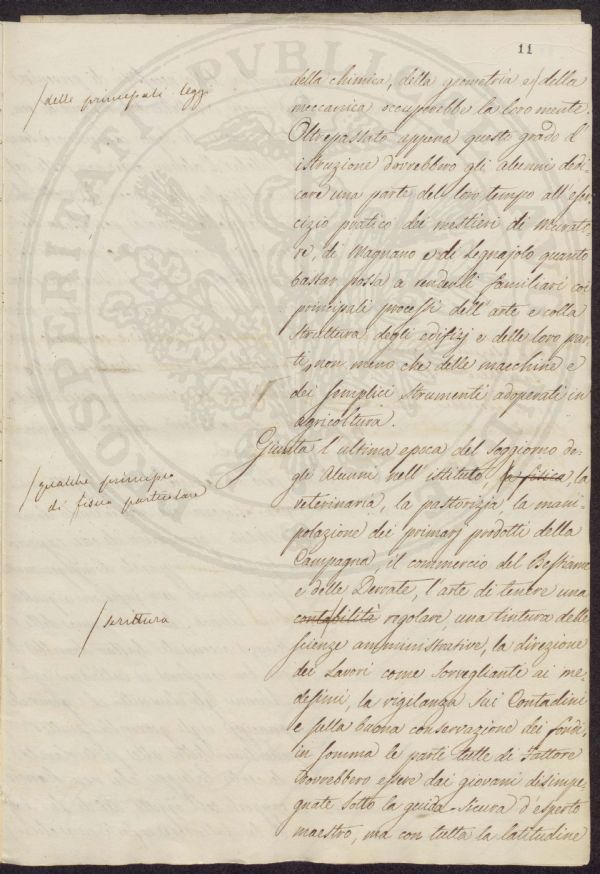 11
della chimica, della geometria e/della
/delle principali leggi
meccanica occuperebbe la loro mente.
Oltrepassato appena questo grado d'
istruzione dovrebbero gli alunni dedi-
care una parte del loro tempo all'eser-
cizio pratico dei mestieri di Murato-
re, di Magnano e di Legnajolo quanto
bastar possa a renderli familiari coi
principali processi dell'arte e colla
struttura degli edifizj e delle loro par-
ti, non meno che delle macchine e
dei semplici strumenti adoperati in
agricoltura.
Giunta l'ultima epoca del soggiorno de-
gli Alunni nell'istituto, la fisica, la
/qualche principio
di fisica particolare
veterinaria, la pastorizia, la mani-
polazione dei primarj prodotti della
Campagna, il commercio del Bestiame
e delle Derrate, l'arte di tenere una
contabilità regolare, una tintura delle
/scrittura
scienze amministrative, la direzione
dei Lavori come sorveglianti ai me-
desimi, la vigilanza sui Contadini
e sulla buona conservazione dei fondi,
in somma le parti tutte di Fattore
dovrebbero essere dai giovani disimpe-
gnate sotto la guida sicura d'esperto
maestro, ma con tutta la latitudine
PROSPERITATI PVBLICAE